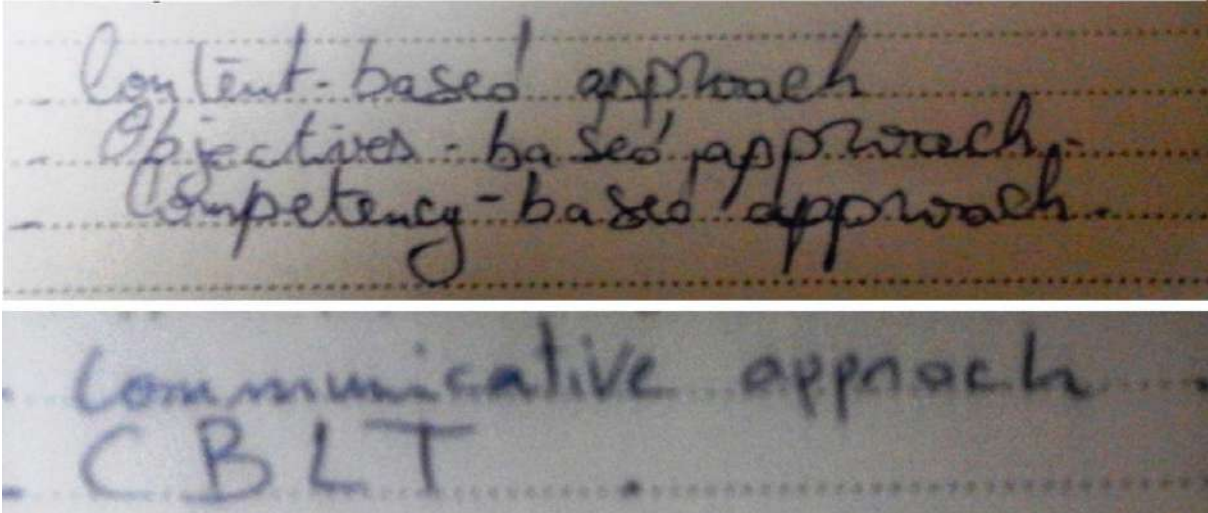 - Content-based approach
- Objectives-based approach.
- Competency-based approach.
- Communicative approach.
- CBLT.